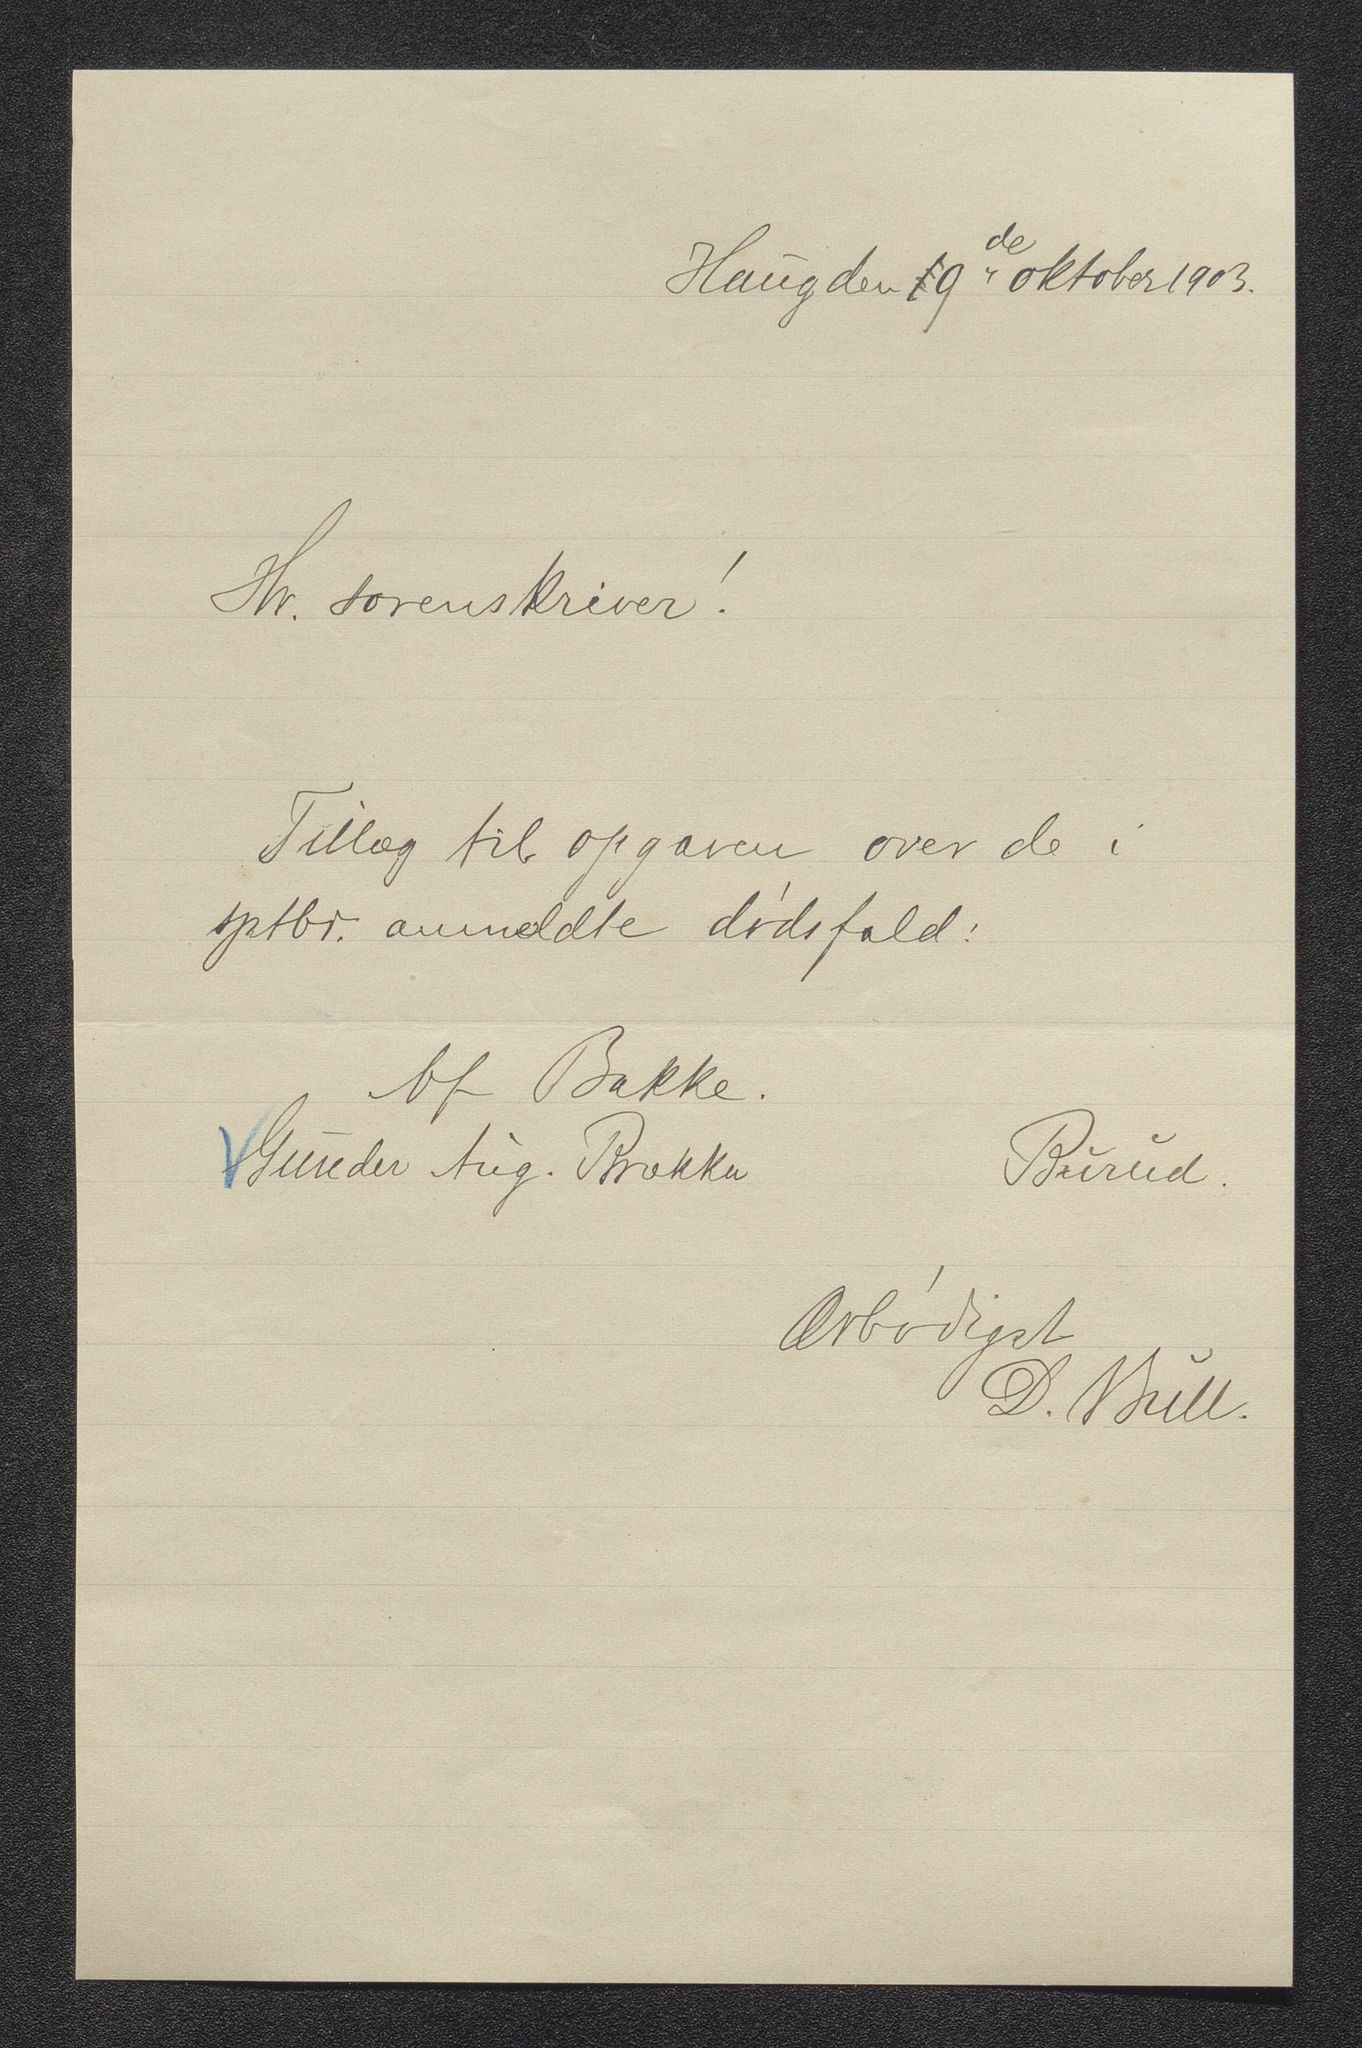 Haug den 19de oktober 1903.
Hr. sorenskriver!
Tillæg til opgaven over de i
sptbr. anmeldte dødsfald:
Af Bakke.
Gunder Aug. Brække Burud.
Ærbødigst
D. Bull.